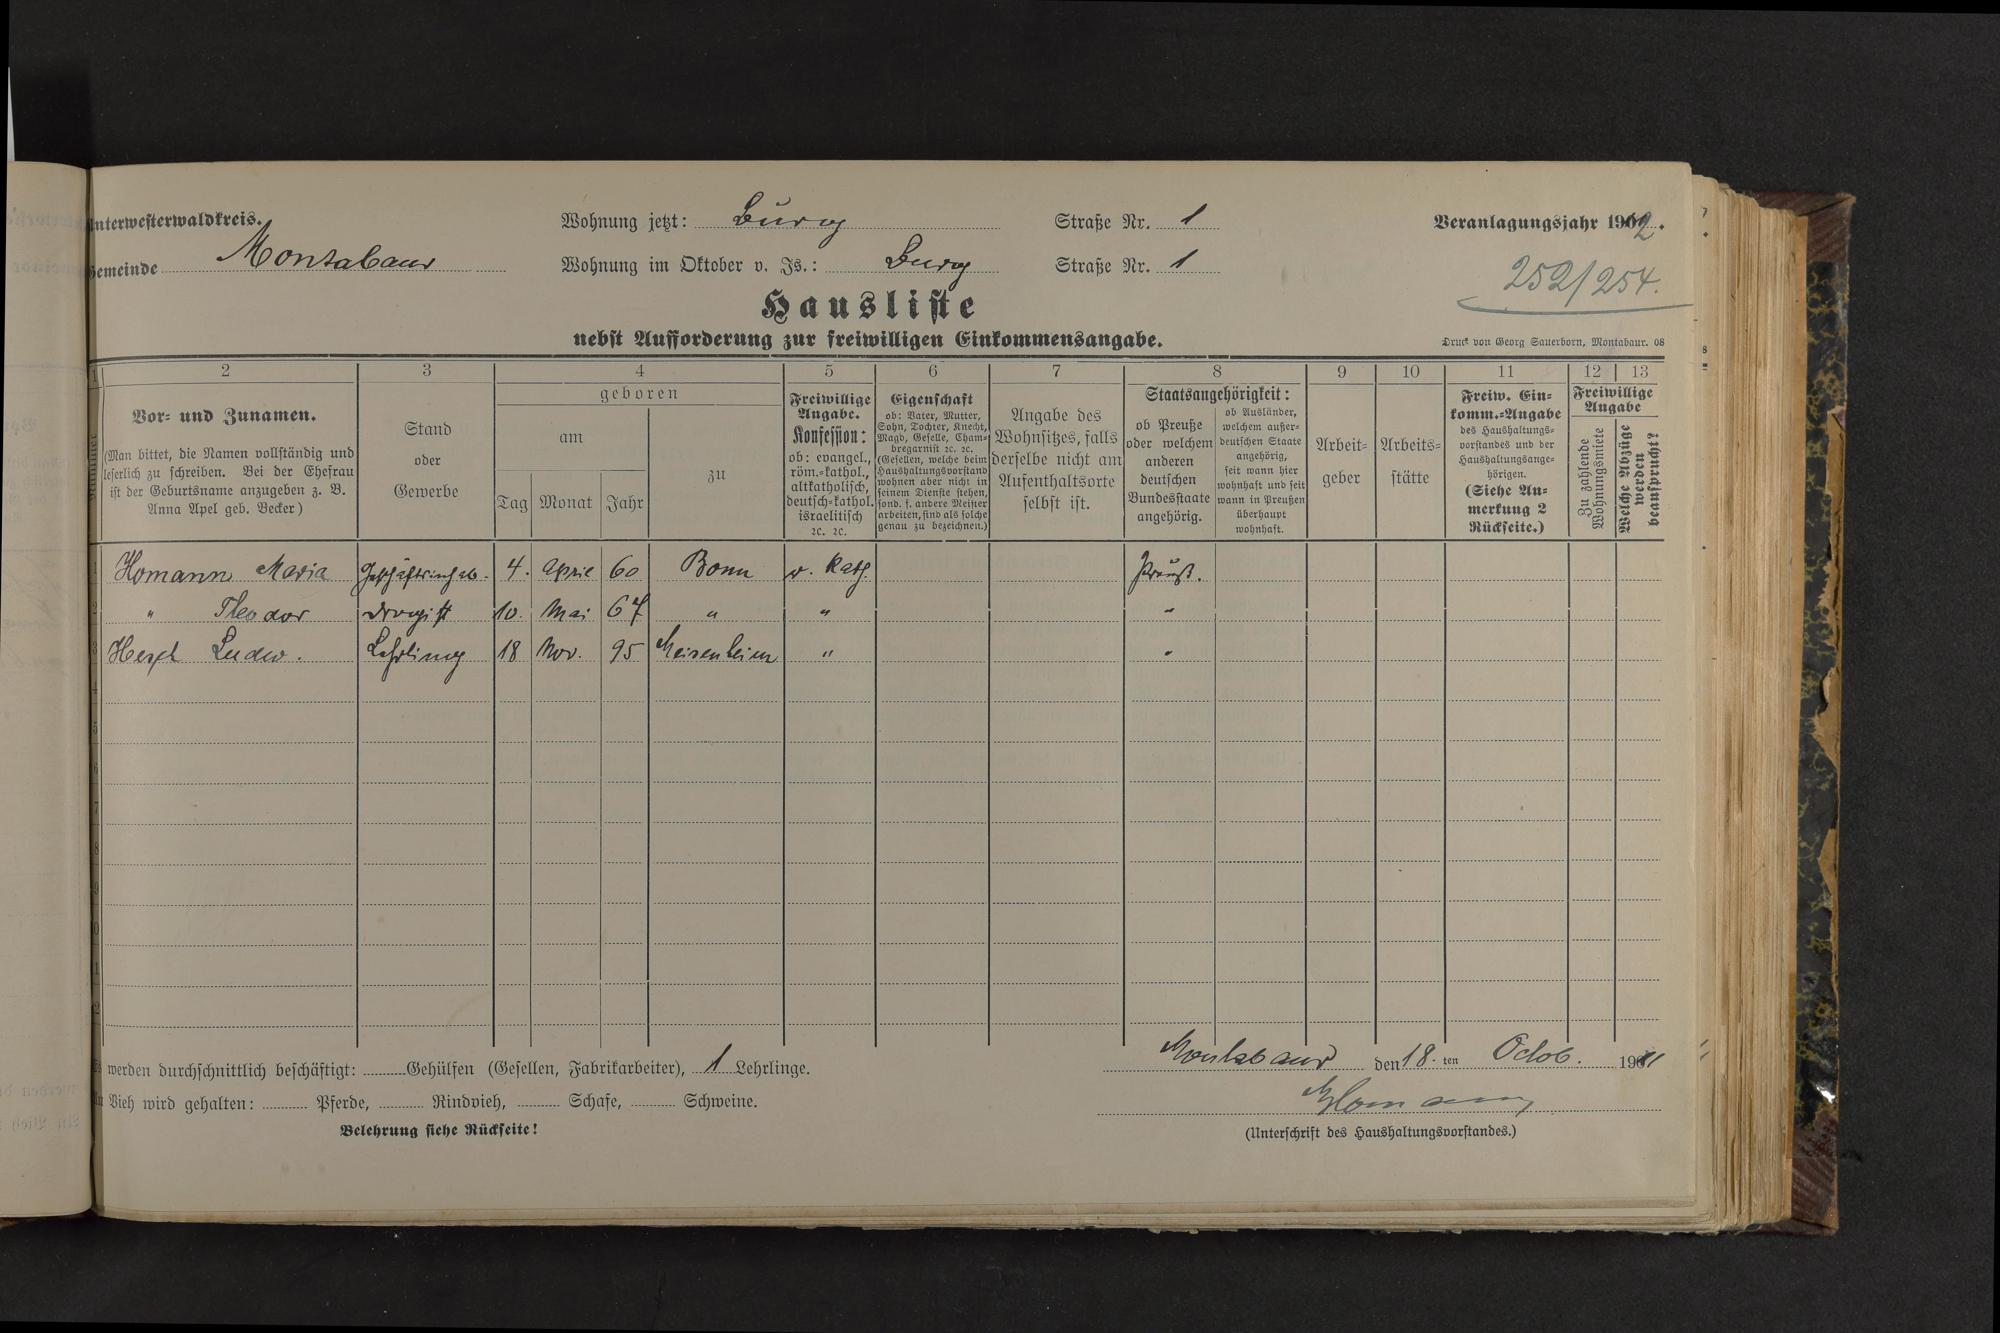 Unterwesterwaldkreis.
Gemeinde Montabaur
Wohnung jetzt: Burg Straße Nr. 1
Wohnung im Oktober v. Js.: Burg Straße Nr. 1
Veranlagungsjahr 1912.
252/254.
Hausliste
nebst Aufforderung zur freiwilligen Einkommensangabe.
Druck von Georg Sauerborn, Montabaur. 08
1 2 3 4 5 6 7 8 9 10 11 12 13
Nummer
Vor- und Zunamen.
(Man bittet, die Namen vollständig und
leserlich zu schreiben. Bei der Ehefrau
ist der Geburtsname anzugeben z. B.
Anna Apel geb. Becker)
Stand
oder
Gewerbe
geboren
am
Tag Monat Jahr
zu
Freiwillige
Angabe.
Konfession:
ob: evangel.,
röm.-kathol.,
altkatholisch,
deutsch-kathol.
israelitisch
ꝛc. ꝛc.
Eigenschaft
ob: Vater, Mutter,
Sohn, Tochter, Knecht,
Magd, Geselle, Cham-
bregarnist ꝛc. ꝛc.
(Gesellen, welche beim
Haushaltungsvorstand
wohnen aber nicht in
seinem Dienste stehen,
sond. f. andere Meister
arbeiten, sind als solche
genau zu bezeichnen.)
Angabe des
Wohnsitzes, falls
derselbe nicht am
Aufenthaltsorte
selbst ist.
Staatsangehörigkeit:
ob Preuße
oder welchem
anderen
deutschen
Bundesstaate
angehörig.
ob Ausländer,
welchem außer-
deutschen Staate
angehörig,
seit wann hier
wohnhaft und seit
wann in Preußen
überhaupt
wohnhaft.
Arbeit-
geber
Arbeits-
stätte
Freiw. Ein-
komm.-Angabe
des Haushaltungs-
vorstandes und der
Haushaltungsange-
hörigen.
(Siehe An-
merkung 2
Rückseite.)
Freiwillige
Angabe
Zu zahlende
Wohnungsmiete
Welche Abzüge
werden
beansprucht?
1 Homann Maria Geschäftsinhab. 4. April 60 Bonn r. kath. Preuß.
2 " Theodor Drogist 10. Mai 67 " " "
3 Ludw. Lehrling 18 Nov. 95 Meisenheim " "
4
5
6
7
8
9
10
11
12
Es werden durchschnittlich beschäftigt: Gehülfen (Gesellen, Fabrikarbeiter), 1 Lehrlinge.
An Vieh wird gehalten: Pferde, Rindvieh, Schafe, Schweine.
Belehrung siehe Rückseite!
Montabaur den 18. ten Octob. 1911
Homann
(Unterschrift des Haushaltungsvorstandes.)